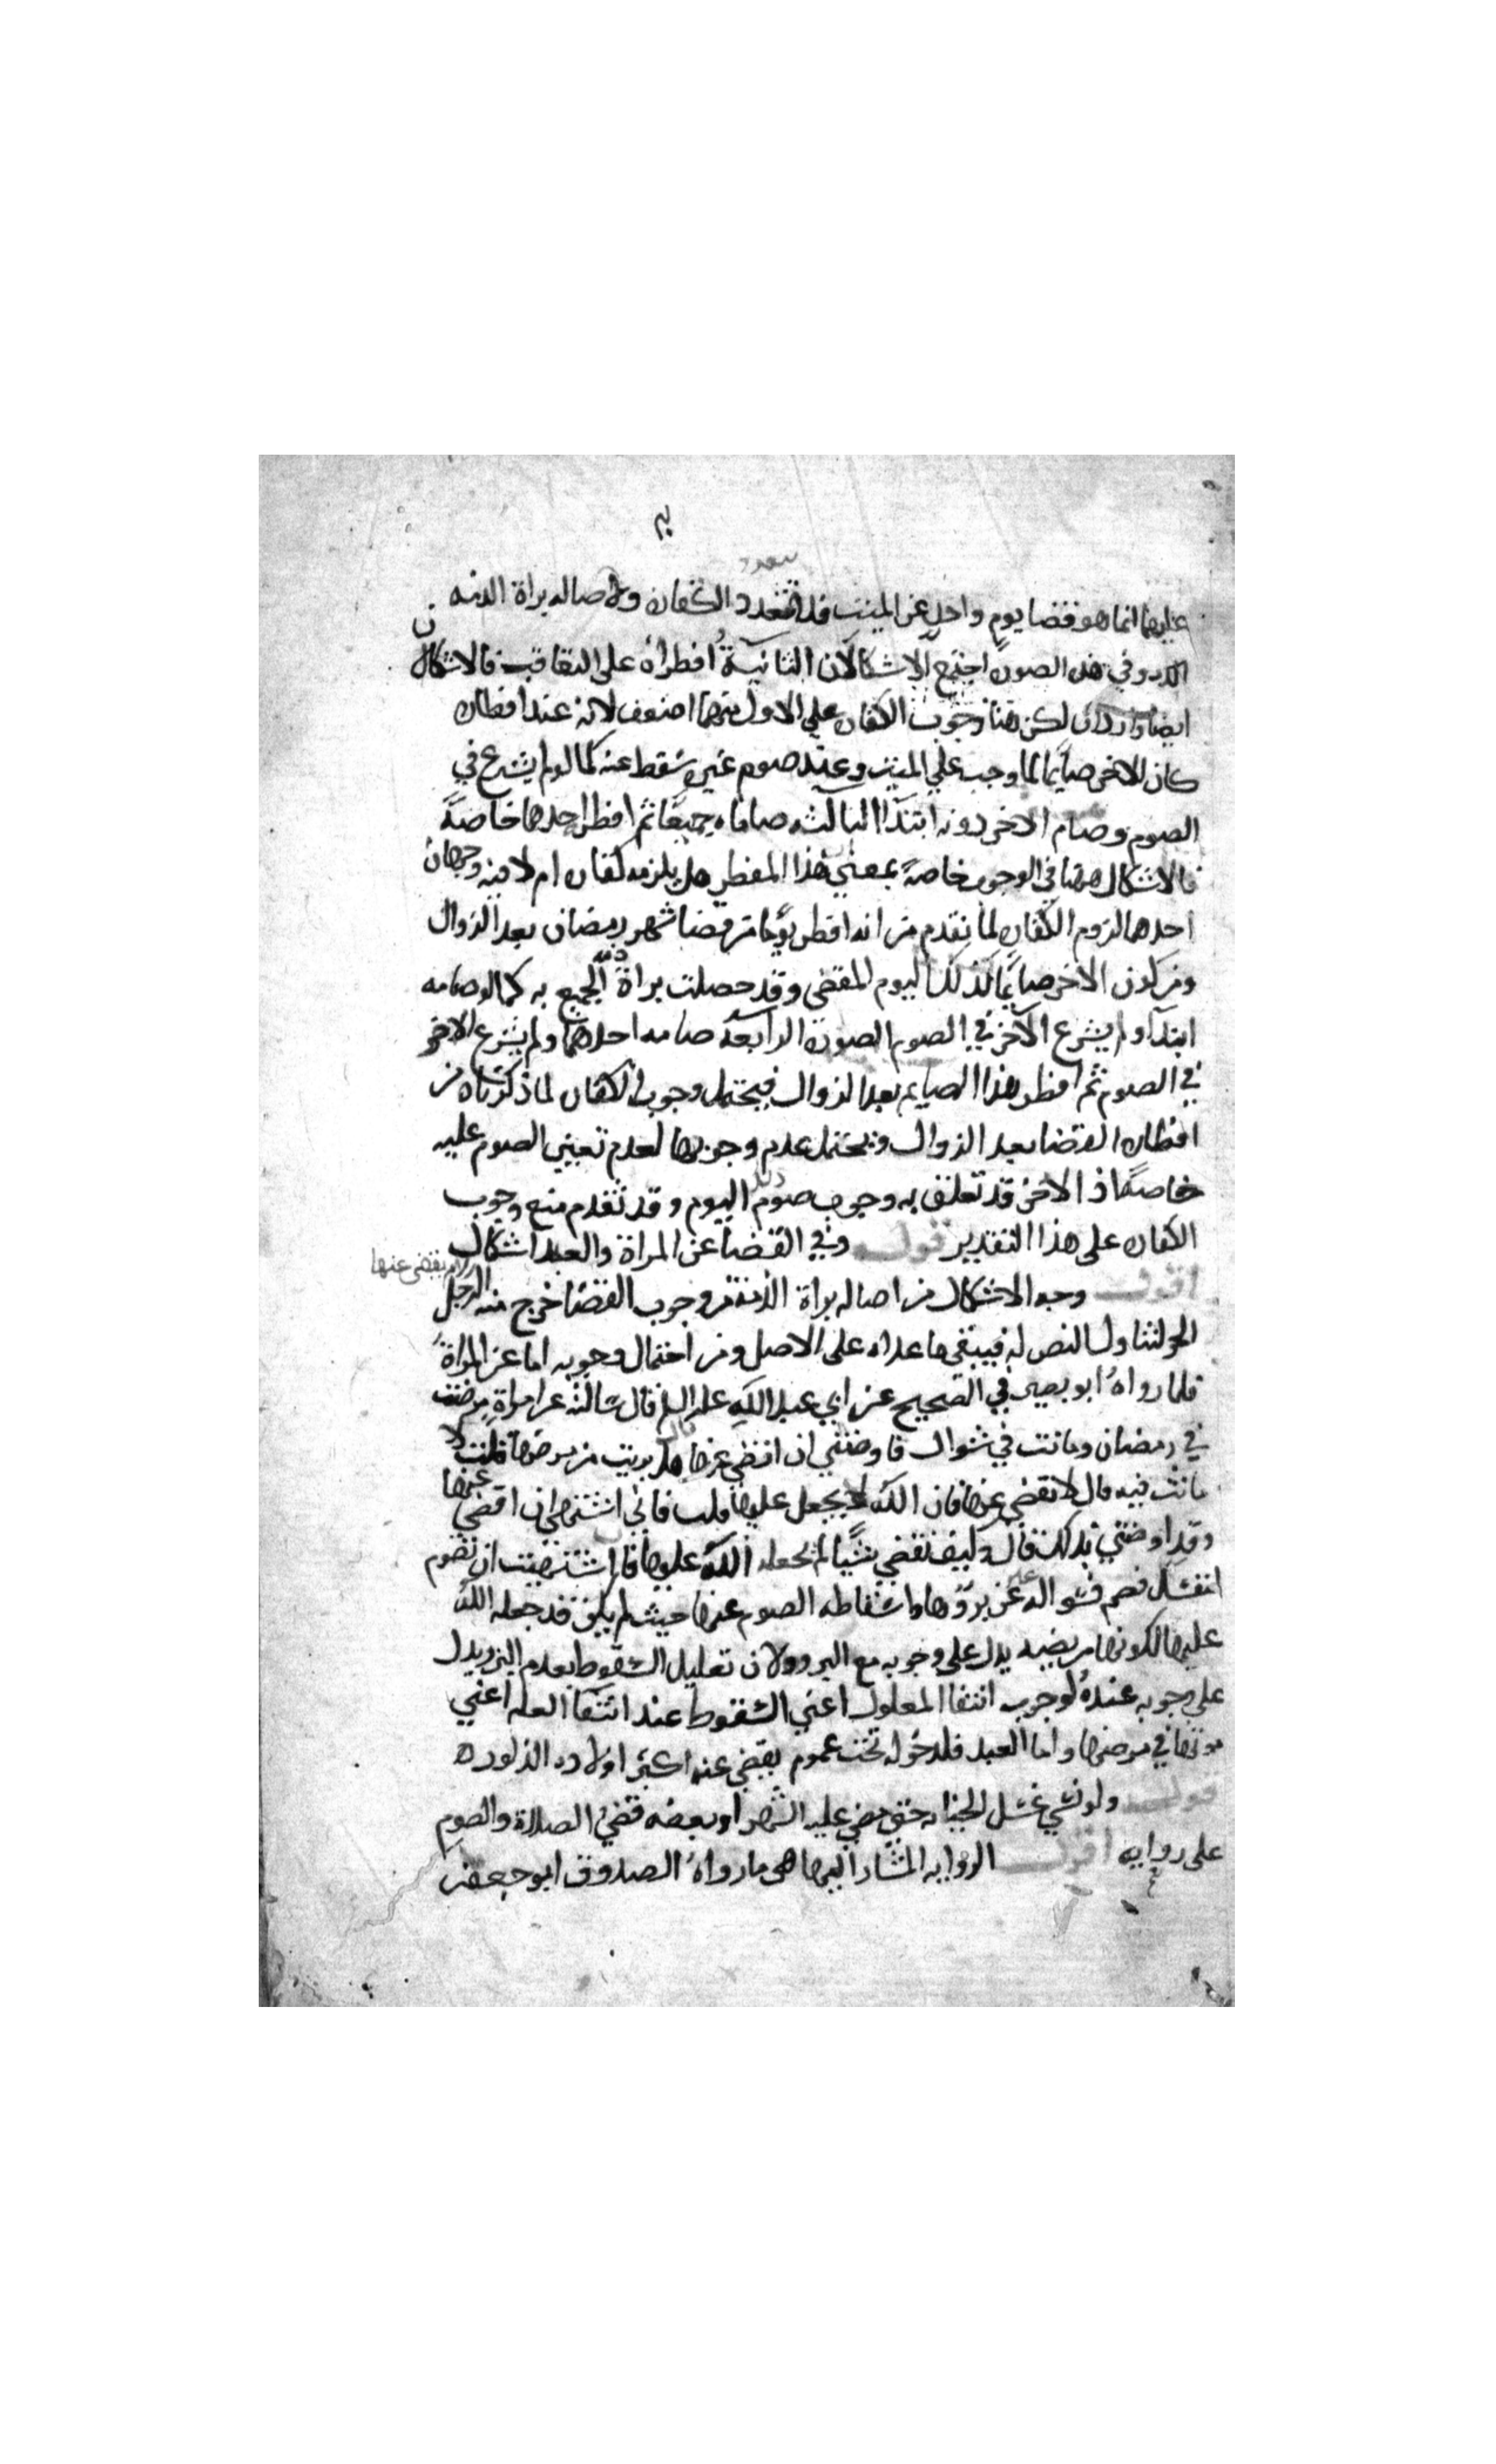 عليهما انما هو قضا يوم واحد عن الميت فلا تتعدد الكفاره ولاصاله براة الذمه
وفي هذه الصورة اجتمع الاشكالان الثانية افطراه على التعاقب فالاشكالان
ايضا واردان لكن هنا وجوب الكفاره على الاول منهما اضعف لانه عند افطاره
كان الاخر صايما لما وجب على الميت وعند صوم غيره سقط عنه كما لو لم يشرع في
الصوم وصام الاخر دونه ابتدا الثالثه صاماه جميعا ثم افطر احدهما خاصة
فالاشكال هنا في الوجوب خاصة بمعنى هذا المفطر هل يلزمه كفاره ام لا فيه وجهان
احدهما لزوم الكفاره لما تقدم من انه افطر يوما من قضا شهر رمضان بعد الزوال
ومن كون الاخر صايما كذلك اليوم المقضى وقد حصلت براة ذمة الجميع به كما لو صامه
ابتدا ولم يشرع الاخر في الصوم الصورة الرابعة صامه احدهما ولم يشرع الاخر
في الصوم ثم افطر هذا الصايم بعد الزوال فيحتمل وجوب الكفاره لما ذكرناه من
افطاره القضا بعد الزوال ويحتمل عدم وجوبها لعدم تعيين الصوم عليه
خاصة اذ الاخر قد تعلق به وجوب صوم ذلك اليوم وقد تقدم منع وجوب
الكفاره على هذا التقدير قوله وفي القضا عن المراة والعبد اشكال
اقول وجه الاشكال من اصاله براة الذمة من وجوب القضا خرج منه الرجل
يقضى عنها
الحر لتناول النص له فيبقى ما عداه على الاصل ومن احتمال وجوبه اما عن المراة
فلما رواه ابو بصير في الصحيح عن ابي عبد الله عليه السلم قال سالته عن امراة مرضت
في رمضان وماتت في شوال فاوصتني ان اقضي عنها قال هل بريت من مرضها قلت لا
ماتت فيه قال لا تقضي عنها فان الله لم يجعله عليها قلت فاني اشتهي ان اقضي عنها
وقد اوصتني بذلك قال وكيف تقضي شيئا لم يجعله الله عليها فان اشتهيت ان تصوم
لنفسك فصم فسواله عليه عن بروها واسقاطه الصوم عنها حيث لم يكن قد جعله الله
عليها لكونها مريضه يدل على وجوبه مع البرو ولان تعليل السقوط بعدم البرو يدل
على وجوبه عنده لوجوب انتفا المعلول اعني السقوط عند انتفا العله اعني
موتها في مرضها واما العبد فلدخوله تحت عموم يقضي عنه اكبر اولاده الذكور ه
قوله ولو نسي غسل الجنابه حتى مضى عليه الشهر او بعضه قضى الصلاة والصوم
على روايه اقول الروايه المشار اليها هى ما رواه الصدوق ابو جعفر